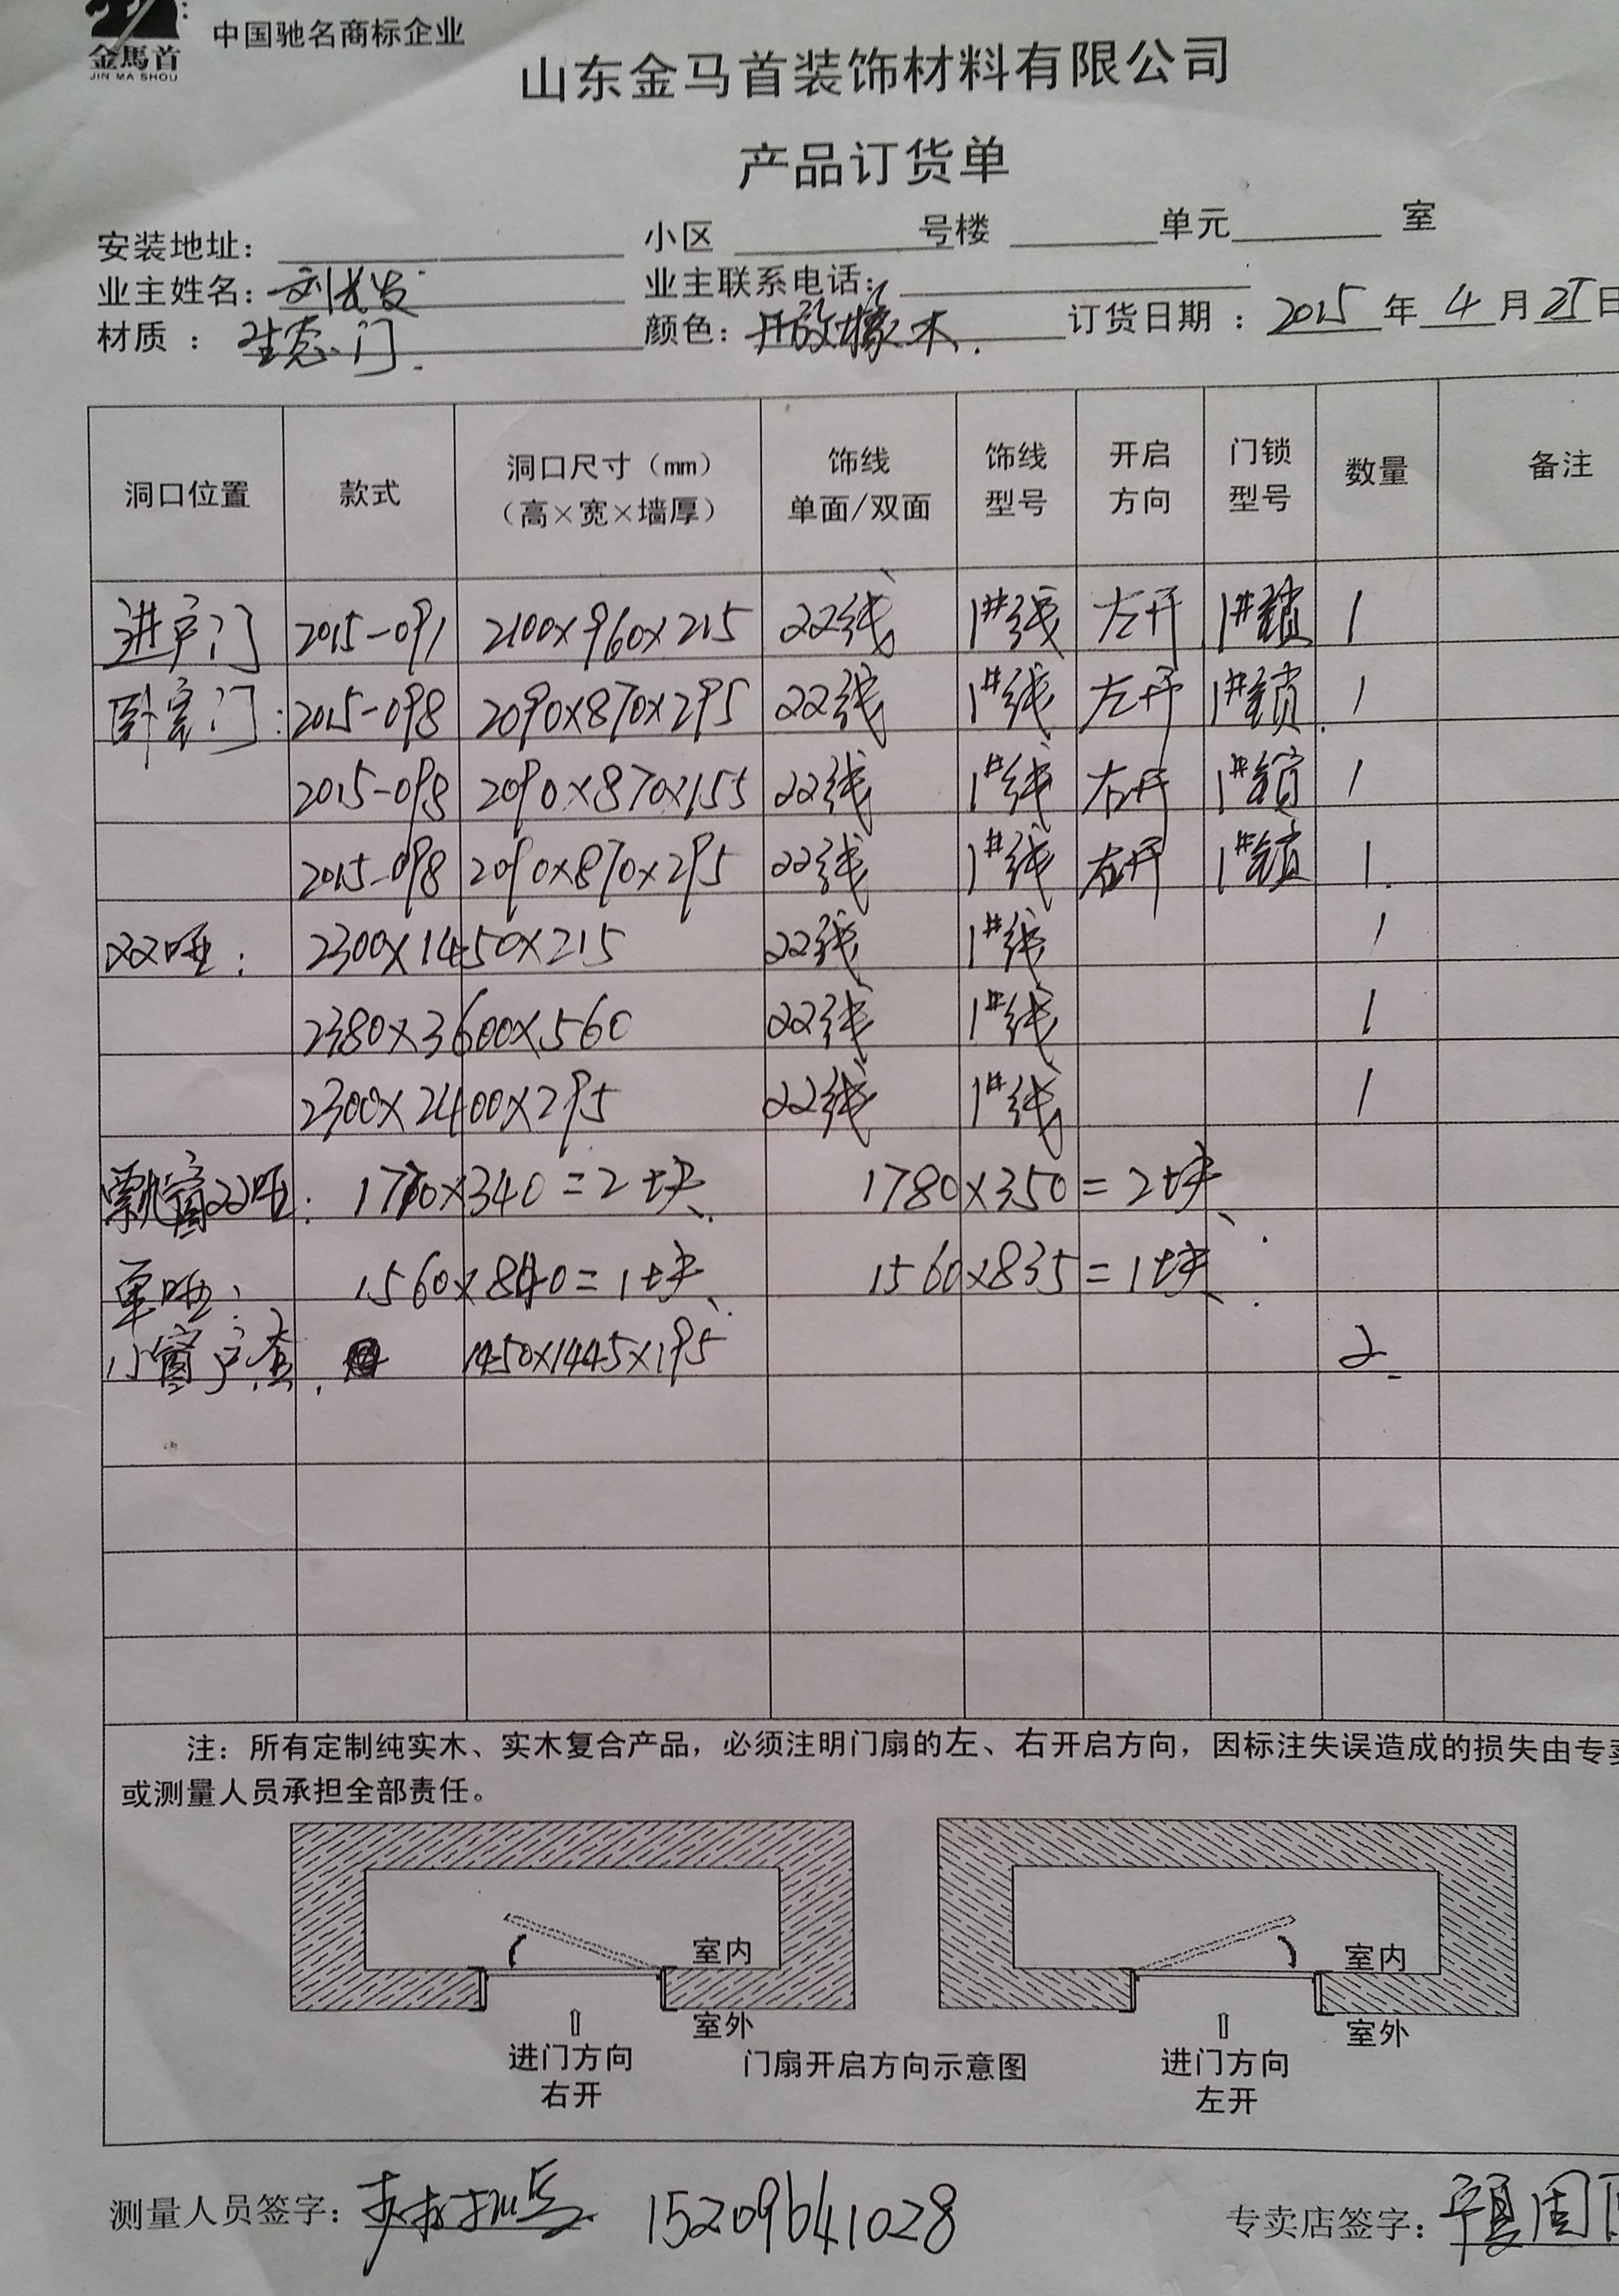 金馬首
JIN MA SHOU
中国驰名商标企业
山东金马首装饰材料有限公司
产品订货单
安装地址： 小区 号楼 单元 室
业主姓名：刘 业主联系电话：
材质：生态门. 颜色：开放橡木. 订货日期：2015年4月25日
洞口位置 款式 洞口尺寸（mm）（高×宽×墙厚） 饰线单面/双面 饰线型号 开启方向 门锁型号 数量 备注
进户门 2015-091 2100×960×215 22线 1#线 左开 1#锁 1
卧室门： 2015-098 2090×870×295 22线 1#线 左开 1#锁 1
2015-098 2090×870×155 22线 1#线 右开 1#锁 1
2015-098 2090×870×295 22线 1#线 右开 1#锁 1.
双哑： 2300×1450×215 22线 1#线 1
2380×3600×560 22线 1#线 1
2300×2400×295 22线 1#线 1
飘窗双哑： ×340=2块、 1780×350=2块、
单哑： 1560×840=1块、 1560×835=1块、
小窗户套. 1450×1445×195 2.
注：所有定制纯实木、实木复合产品，必须注明门扇的左、右开启方向，因标注失误造成的损失由专卖
或测量人员承担全部责任。
室内 室内
室外 室外
进门方向 门扇开启方向示意图 进门方向
右开 左开
测量人员签字： 15209641028 专卖店签字：宁夏固